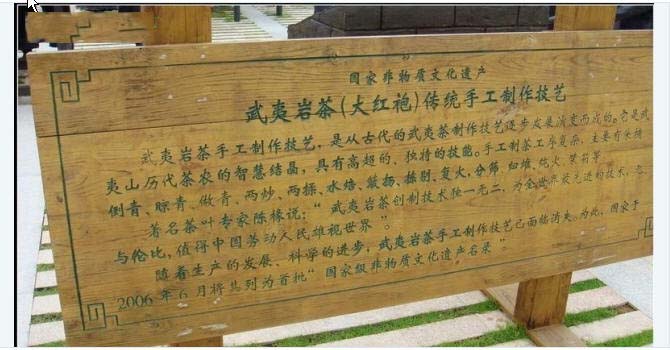 国家非物质文化遗产
武夷岩茶(大红袍)传统手工制作技艺
武夷岩茶手工制作技艺，是从古代的武夷茶制作技艺逐步发展演变而成的。它是武
夷山历代茶农的智慧结晶，具有高超的、独特的技能。手工制茶工序复杂，主要有
倒青、晾青、做青、两炒、两揉、水焙、簸扬、拣剔、复火、分筛、归堆、炖火、
著名茶叶专家陈椽说：“武夷岩茶创制技术独一无二，为全世界最先进的技术，
与伦比，值得中国劳动人民雄视世界”。
随着生产的发展、科学的进步，武夷岩茶手工制作技艺已面临消失。为此，国家于
2006年6月将其列为首批“国家级非物质文化遗产名录”